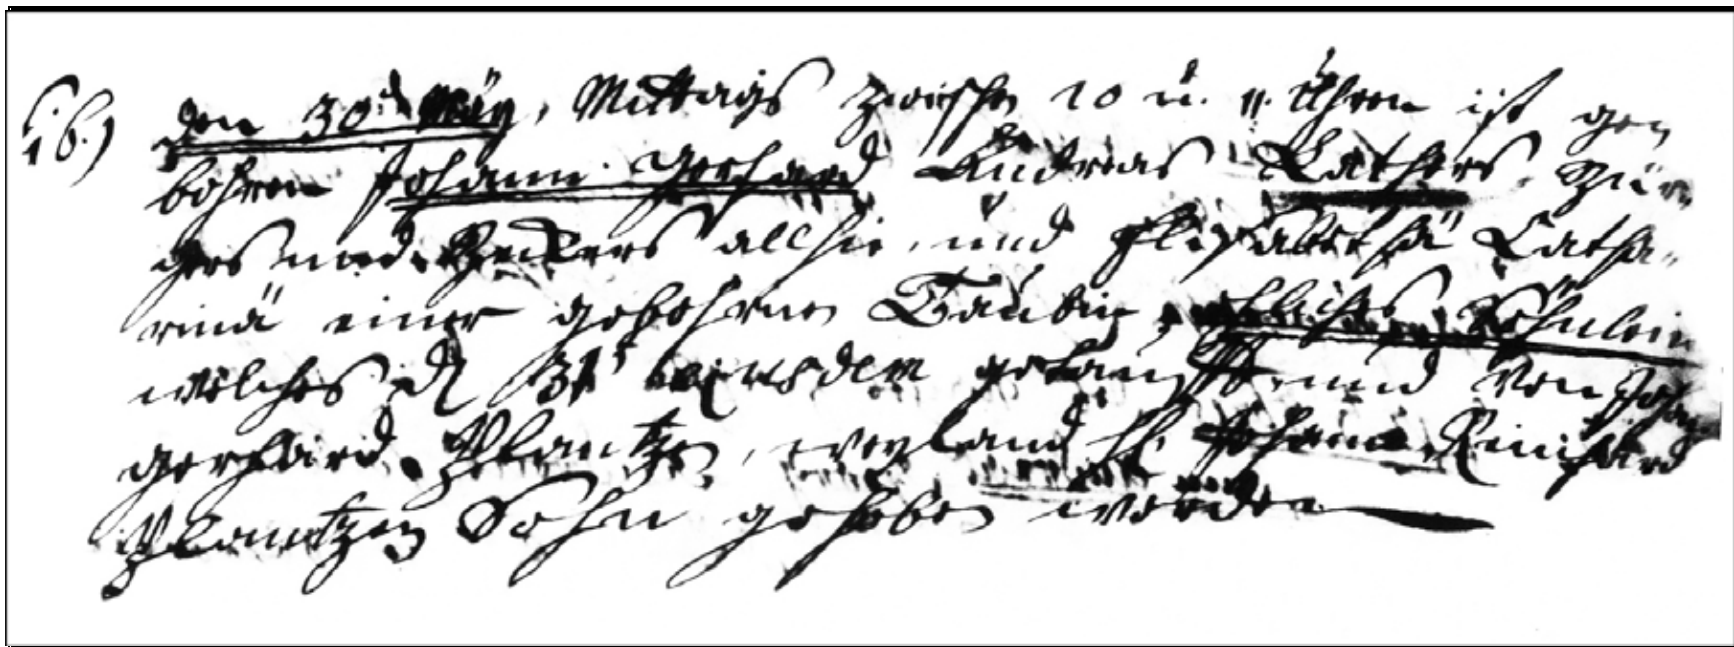 16.) den 30.ten May, Mittags zwischen 10 u. 11. Uhren ist gen
bohren Johann Gerhard Andreas Lathers, Bür,
gers und Beckers allhie, und Elisabethä Catha,
rinä einer gebohrnen Taubin, ehliches Söhnlein
welches d 31t ejusdem getaufft und von Joh
gerhard Plantzen, weyland H. Johann Reinhard
Plantzen Sohn gehoben worden